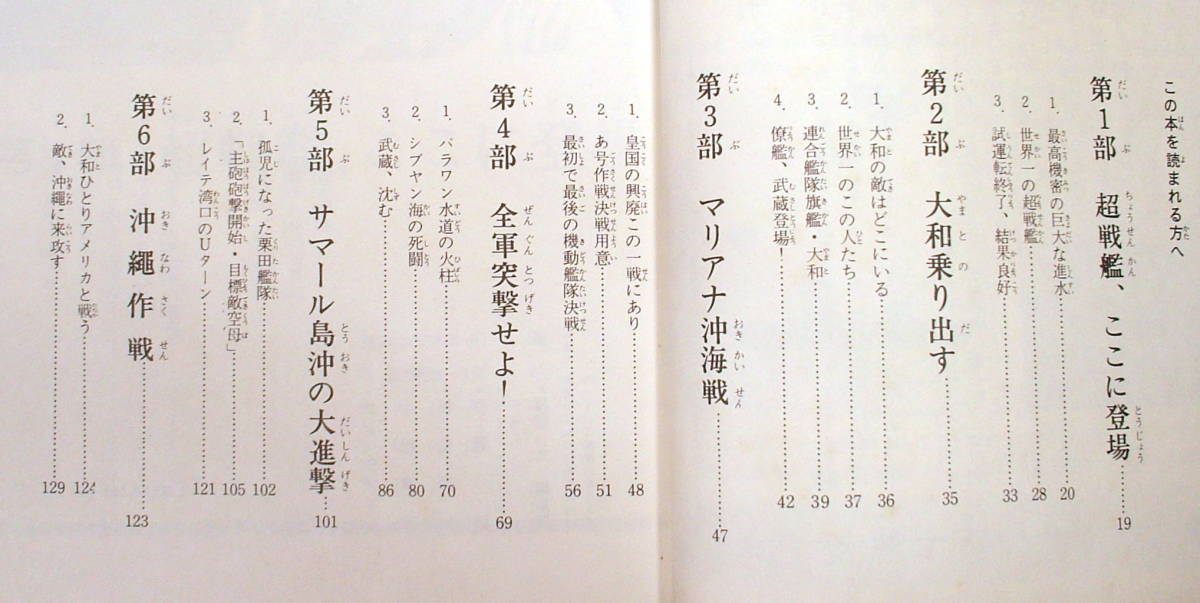 この本を読まれる方へ
第1部 超戦艦、ここに登場……19
1. 最高機密の巨大な進水……20
2. 世界一の超戦艦……28
3. 試運転終了、結果良好……33
第2部 大和乗り出す……35
1. 大和の敵はどこにいる……36
2. 世界一のこの人たち……37
3. 連合艦隊旗艦・大和……39
4. 僚艦、武蔵登場！……42
第3部 マリアナ沖海戦……47
1. 皇国の興廃この一戦にあり……48
2. あ号作戦決戦用意……51
3. 最初で最後の機動艦隊決戦……56
第4部 全軍突撃せよ！……69
1. パラワン水道の火柱……70
2. シブヤン海の死闘……80
3. 武蔵、沈む……86
第5部 サマール島沖の大進撃……101
1. 孤児になった栗田艦隊……102
2. 「主砲砲撃開始・目標敵空母」……105
3. レイテ湾口のUターン……121
第6部 沖縄作戦……123
1. 大和ひとりアメリカと戦う……124
2. 敵、沖縄に来攻す……129